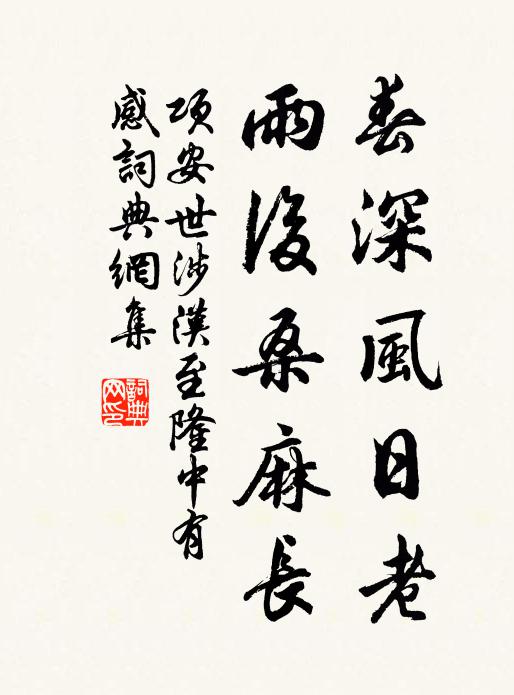 春深風日老
雨後桑麻長
項安世涉漢至隆中有
感詞典網集
詞典
網印